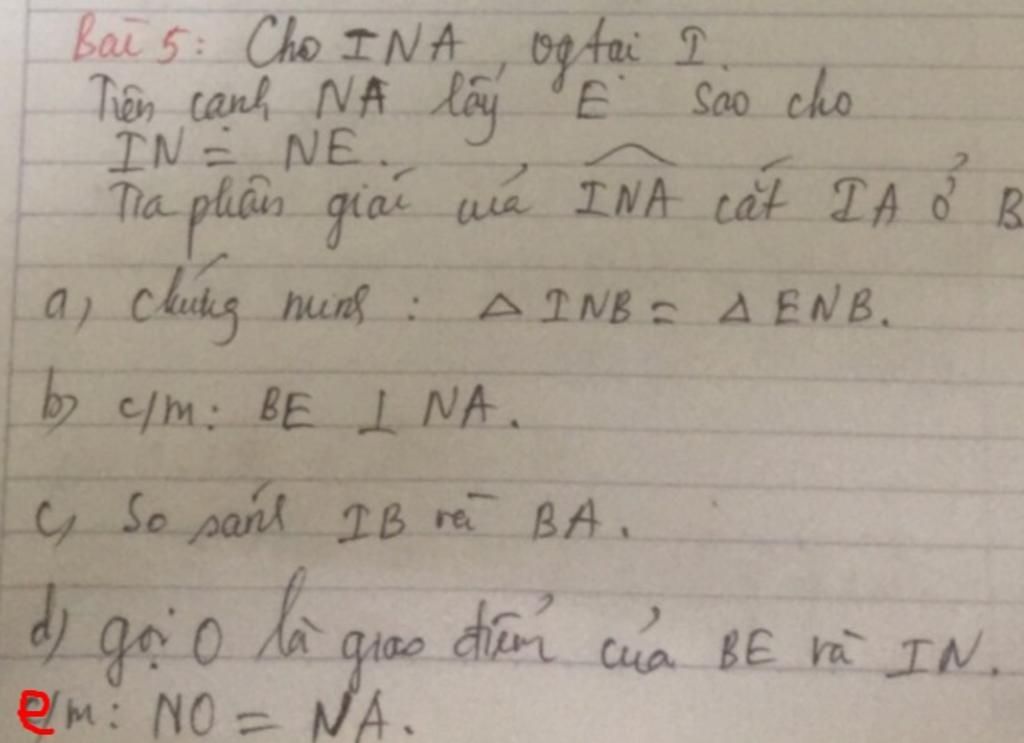 Bài 5: Cho INA, vg tại I.
Trên cạnh NA lấy E sao cho
IN = NE.
Tia phân giác của INA cắt IA ở B
a, Chứng minh : △ INB = △ ENB.
b) c/m: BE ⊥ NA.
c, So sánh IB và BA.
d) gọi O là giao điểm của BE và IN.
e/m: NO = NA.